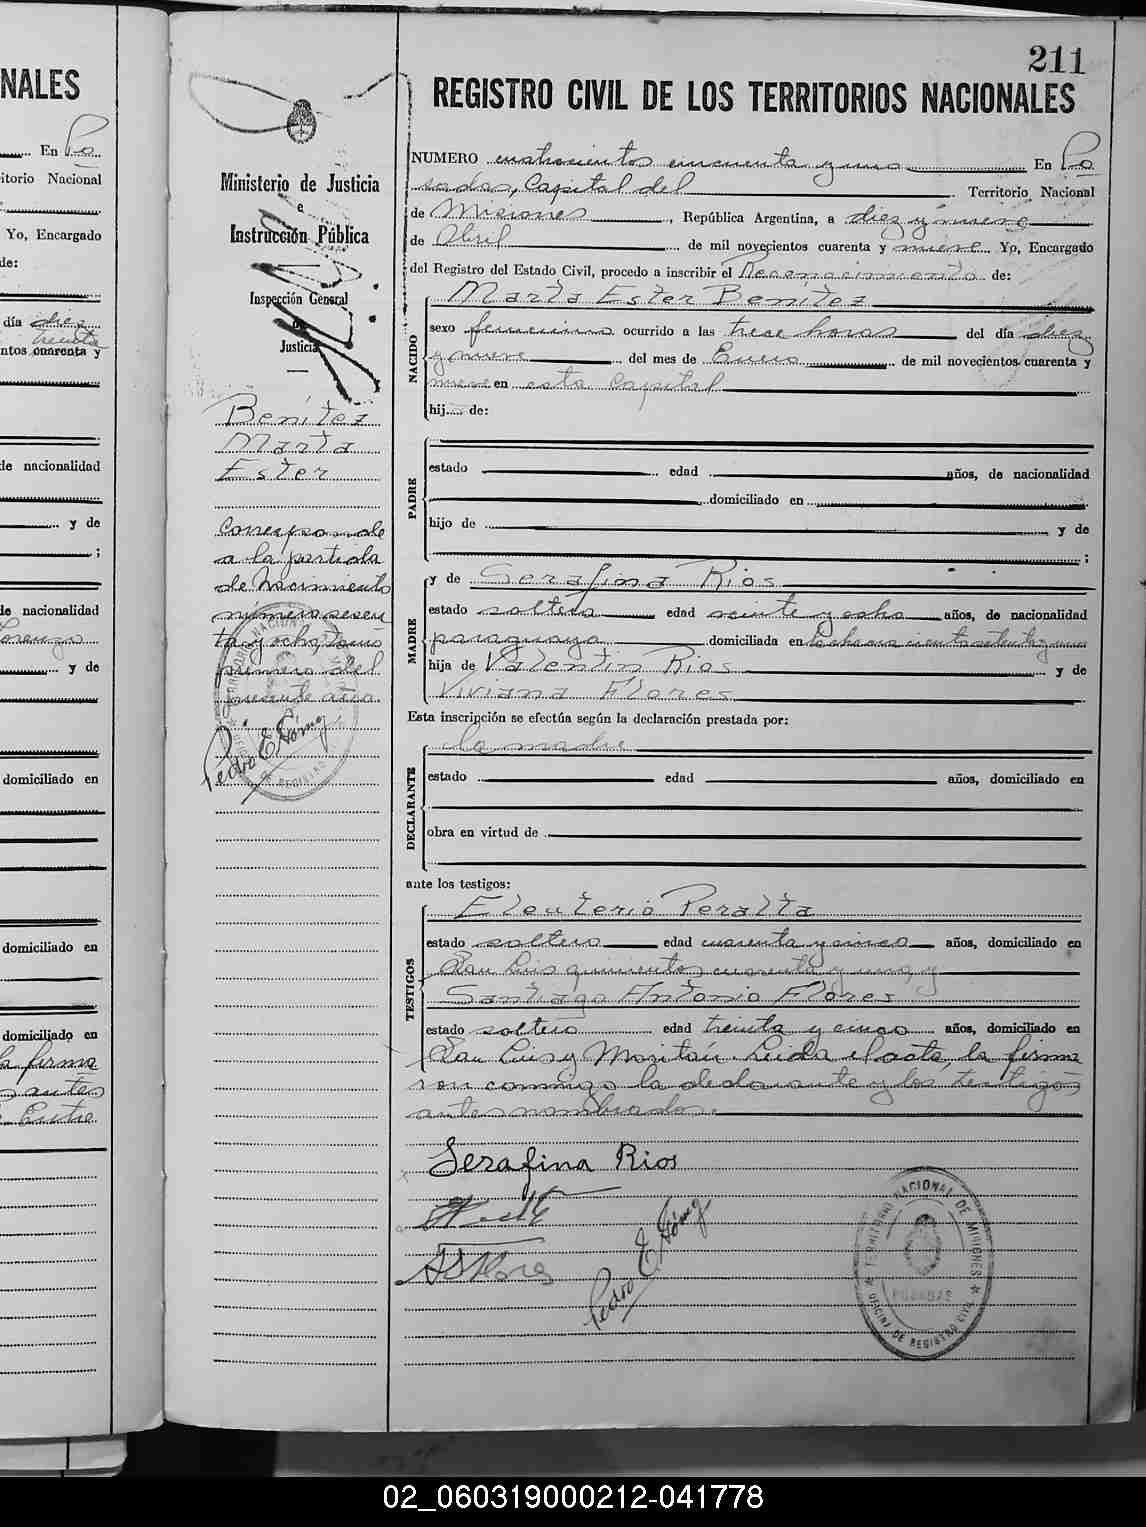 211
NALES
En Po
itorio Nacional
Yo, Encargado
de:
día diez
treinta
ntos cuarenta y
de nacionalidad
y de
;
de nacionalidad
Lorenzo
y de
domiciliado en
domiciliado en
domiciliado en
la firma
s antes
Entre
Ministerio de Justicia
e
Instrucción Pública
Inspección General
de
Justicia
Benítez
Marta
Ester
Corresponde
a la partida
de Nacimiento
número sesen
ta y ocho, tomo
primero del
presente año.
Pedro E. Gómez
REGISTRO CIVIL DE LOS TERRITORIOS NACIONALES
NUMERO cuatrocientos cincuenta y uno En Po
sadas, Capital del Territorio Nacional
de Misiones, República Argentina, a diez y nueve
de Abril de mil novecientos cuarenta y nueve Yo, Encargado
del Registro del Estado Civil, procedo a inscribir el Reconocimiento de:
NACIDO
Marta Ester Benítez
sexo femenino ocurrido a las trece horas del día diez
y nueve del mes de Enero de mil novecientos cuarenta y
nueve en esta Capital
hij.... de:
PADRE
estado edad años, de nacionalidad
domiciliado en
hijo de y de
;
MADRE
y de Serafina Rios
estado soltera edad veinte y ocho años, de nacionalidad
paraguaya domiciliada en ciento setenta y uno
hija de Valentin Rios y de
Viviana Flores
Esta inscripción se efectúa según la declaración prestada por:
DECLARANTE
la madre
estado edad años, domiciliado en
obra en virtud de
ante los testigos:
TESTIGOS
Eleuterio Peralta
estado soltero edad cuarenta y cinco años, domiciliado en
San Luis quinientos cuarenta y uno, y
Santiago Antonio Flores
estado soltero edad treinta y cinco años, domiciliado en
San Luis y Moritan. Leída el acta, la firma
ron conmigo la declarante y los testigos
antes nombrados.
Serafina Rios
Pedro E. Gómez
TERRITORIO NACIONAL DE MISIONES
POSADAS
OFICINA DE REGISTRO CIVIL
02_060319000212-041778